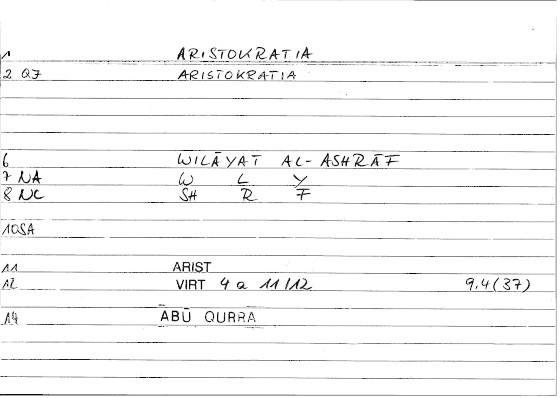 1 ARISTOKRATIA
2 Q7 ARISTOKRATIA
6 WILĀYAT AL-ASHRĀF
7 NA W L Y
8 NC SH R F
10SA
11 ARIST
12 VIRT 4 a 11/12 9,4(37)
14 ABŪ QURRA